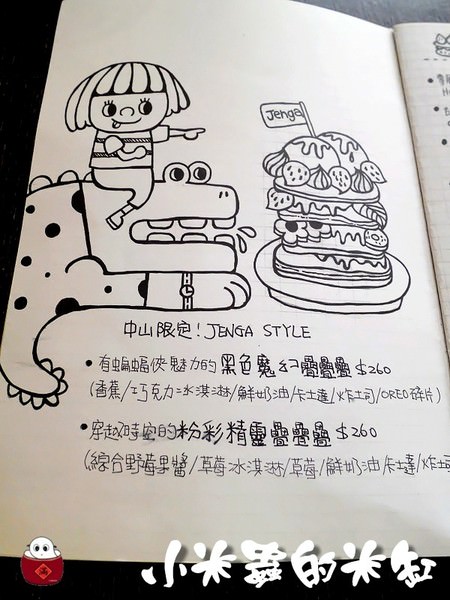 Jenga
中山限定! JENGA STYLE
• 有蝙蝠俠魅力的黑色魔幻疊疊疊 $260
(香蕉/巧克力冰淇淋/鮮奶油/卡士達/炸土司/OREO碎片)
• 穿越時空的粉彩精靈疊疊疊 $260
(綜合野莓果醬/草莓冰淇淋/草莓/鮮奶油/卡士達/炸土司
小米蟲的米缸